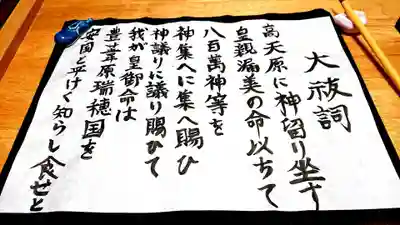 大祓詞
高天原に神留り坐す
皇親漏美の命以ちて
八百萬神等を
神集へに集へ賜ひ
神議りに議り賜ひて
我が皇御命は
豊葦原瑞穂国を
安国と平けく知らし食せと